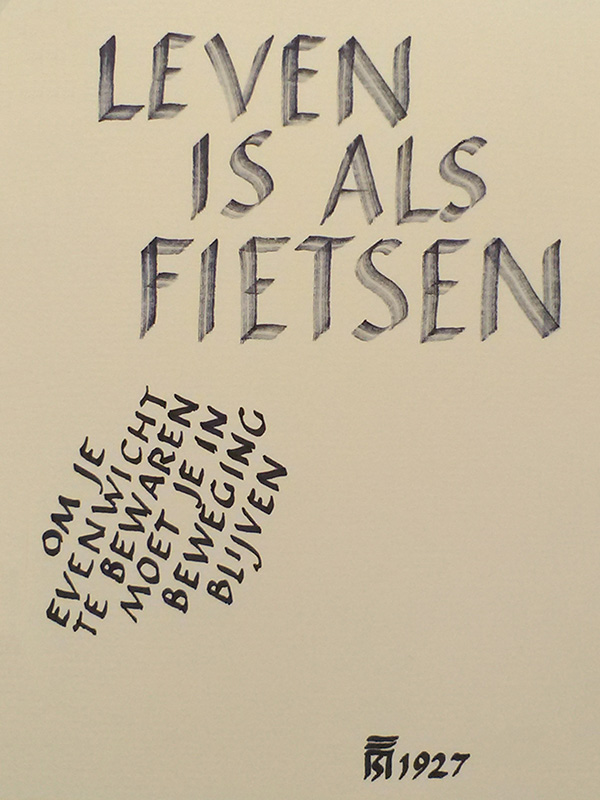 LEVEN
IS ALS
FIETSEN
OM JE
EVENWICHT
TE BEWAREN
MOET JE IN
BEWEGING
BLIJVEN
1927